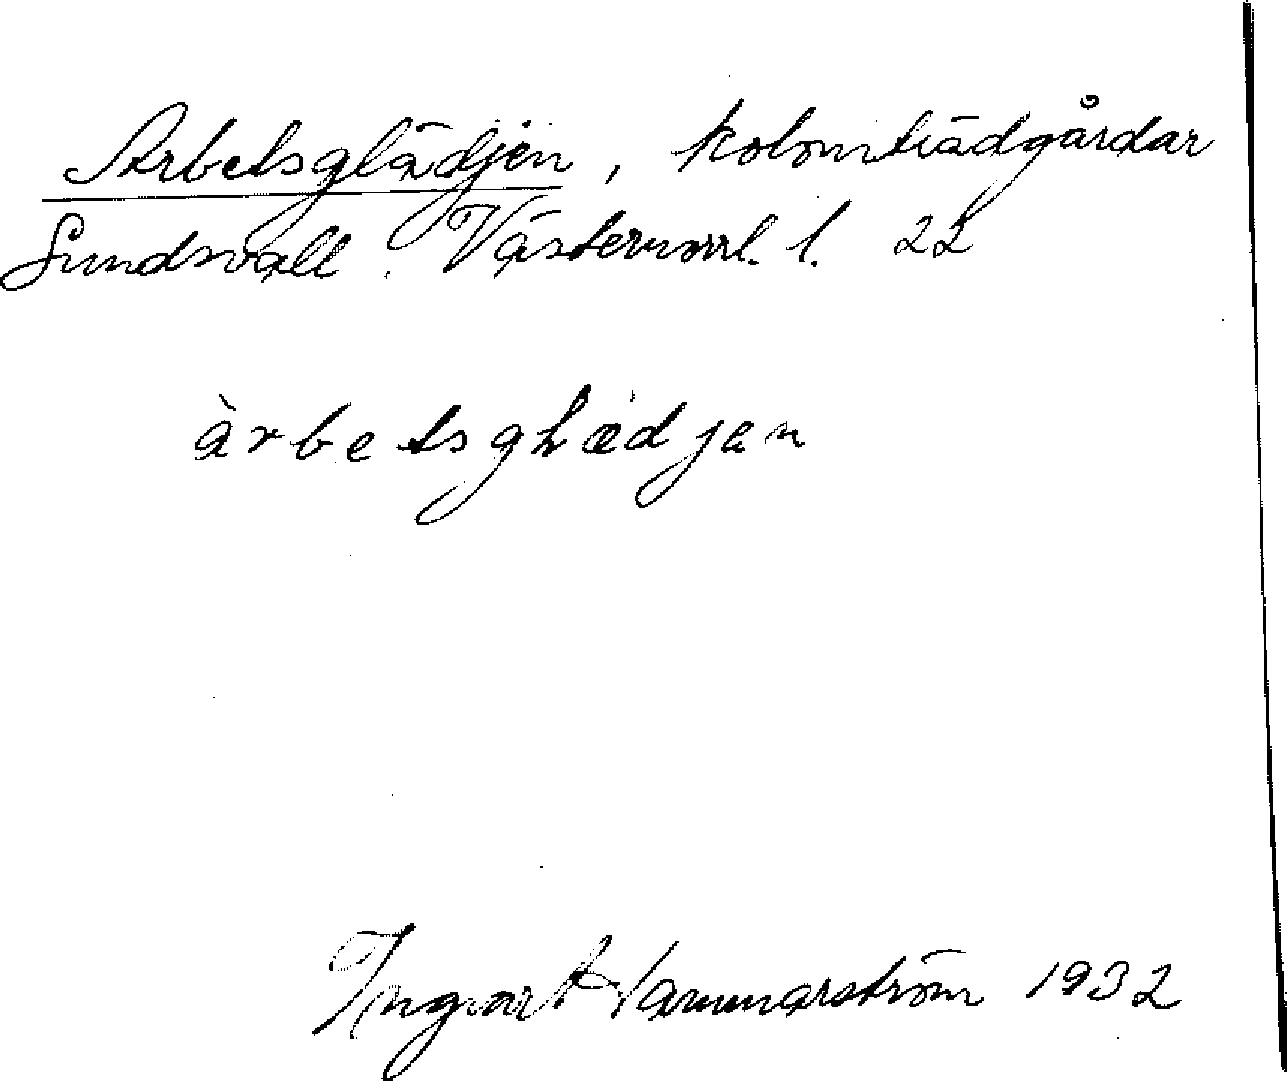 Arbetsglädjen, koloniträdgårdar
Sundsvall. Västernorrl. l. 22
àrbetsglædjen
Ingvar Hammarström 1932